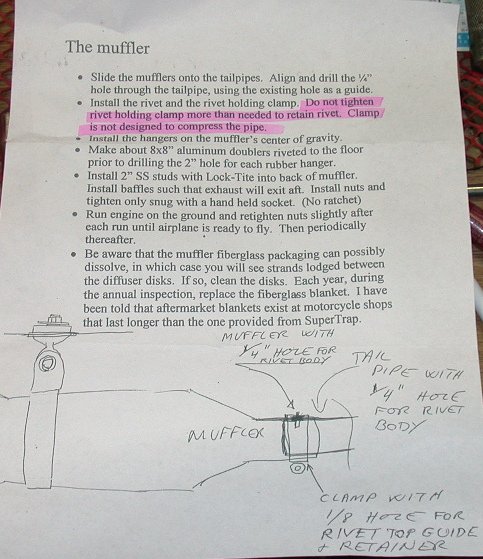 The muffler
• Slide the mufflers onto the tailpipes.  Align and drill the ¼”
hole through the tailpipe, using the existing hole as a guide.
• Install the rivet and the rivet holding clamp.  Do not tighten
rivet holding clamp more than needed to retain rivet.  Clamp
is not designed to compress the pipe.
• Install the hangers on the muffler’s center of gravity.
• Make about 8x8” aluminum doublers riveted to the floor
prior to drilling the 2” hole for each rubber hanger.
• Install 2” SS studs with Lock-Tite into back of muffler.
Install baffles such that exhaust will exit aft.  Install nuts and
tighten only snug with a hand held socket.  (No ratchet)
• Run engine on the ground and retighten nuts slightly after
each run until airplane is ready to fly.  Then periodically
thereafter.
• Be aware that the muffler fiberglass packaging can possibly
dissolve, in which case you will see strands lodged between
the diffuser disks.  If so, clean the disks.  Each year, during
the annual inspection, replace the fiberglass blanket.  I have
been told that aftermarket blankets exist at motorcycle shops
that last longer than the one provided from SuperTrap.
MUFFLER WITH
1/4" HOLE FOR
RIVET BODY
TAIL
PIPE WITH
1/4" HOLE
FOR RIVET
BODY
MUFFLER
CLAMP WITH
1/8 HOLE FOR
RIVET TOP GUIDE
+ RETAINER